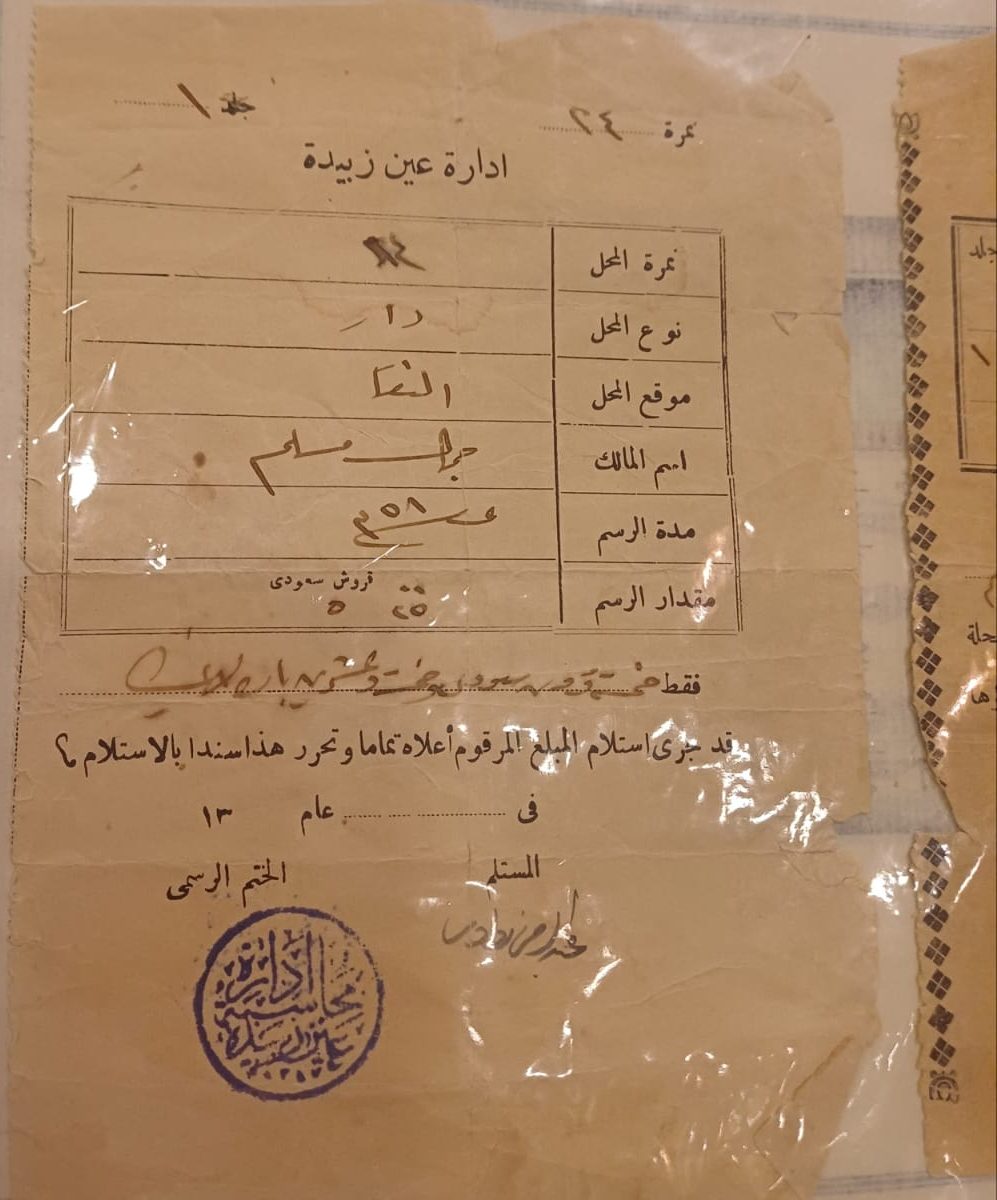 نمرة ٢٤ جلد ١
ادارة عين زبيدة
نمرة المحل
نوع المحل دار
موقع المحل النقا
اسم المالك مسلم
مدة الرسم ٥٨
مقدار الرسم ٢٥ ٥ قروش سعودى
فقط خمسة قروش سعودي وخمسة وعشرين بارة
قد جرى استلام المبلغ المرقوم أعلاه تماما وتحرر هذا سندا بالاستلام
فى عام ١٣
المستلم الختم الرسمى
ادارة
محاسبة
عين زبيدة
جلد
١